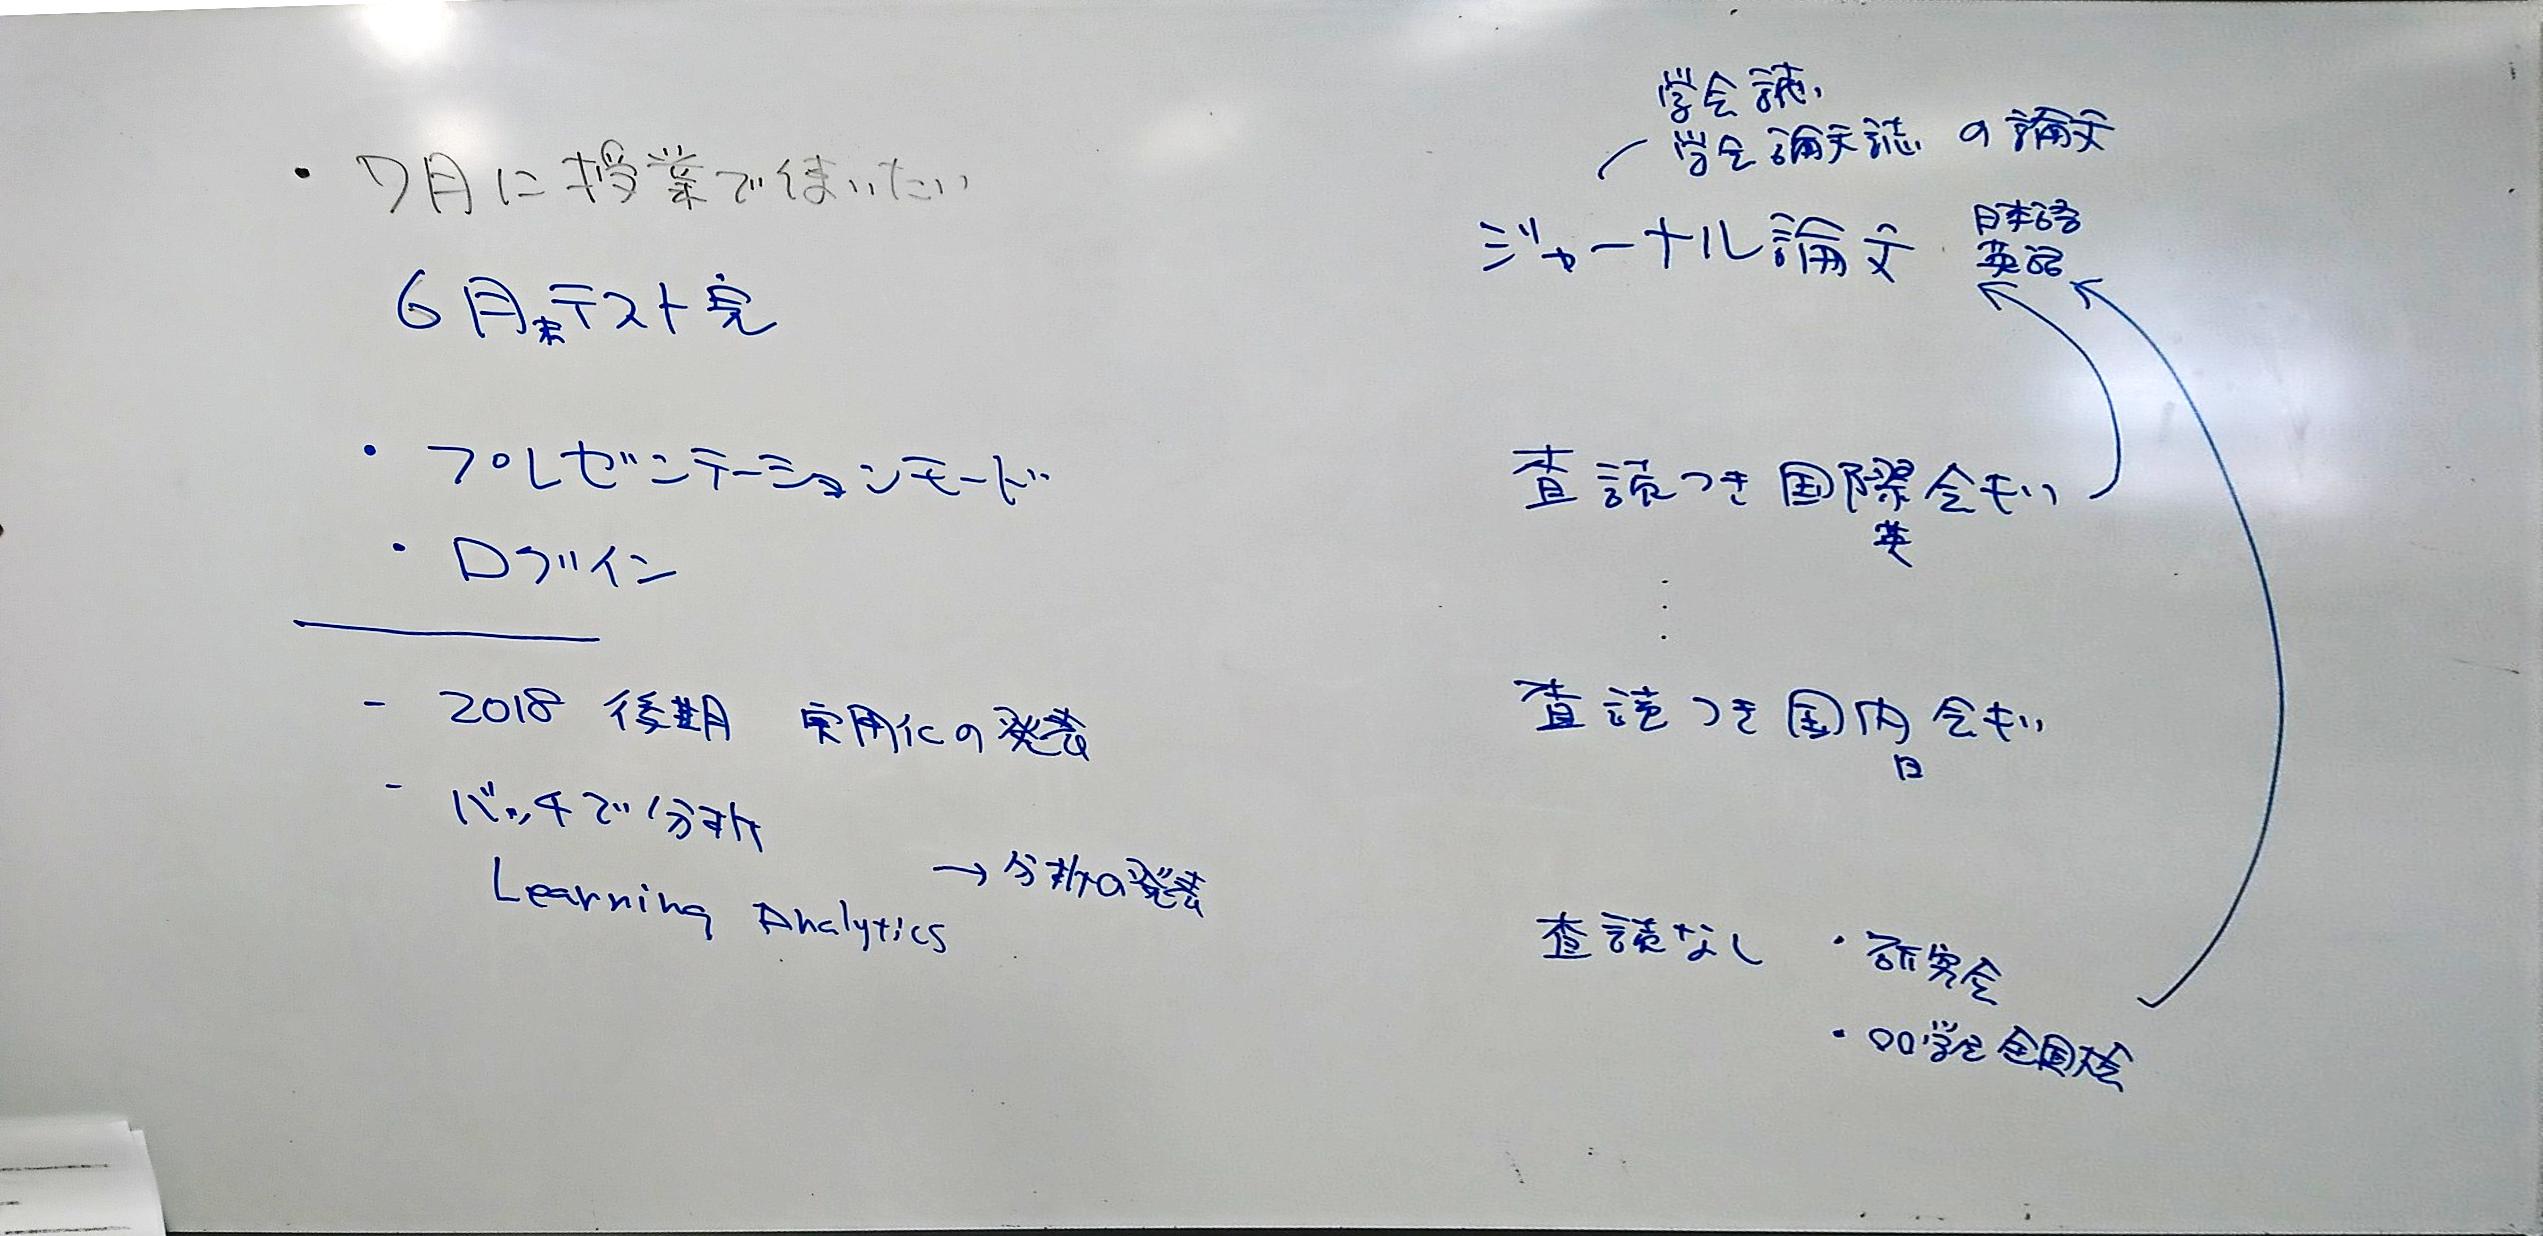 ・7月に授業で使いたい
6月末テスト完
・プレゼンテーションモード
・ログイン
- 2018 後期 実用化の発表
- バッチで分析
Learning Analytics
→ 分析の発表
学会誌
学会論文誌 の論文
ジャーナル論文
日本語
英語
査読つき国際会ギ
英
査読つき国内会ギ
日
査読なし ・研究会
・○○学会全国大会